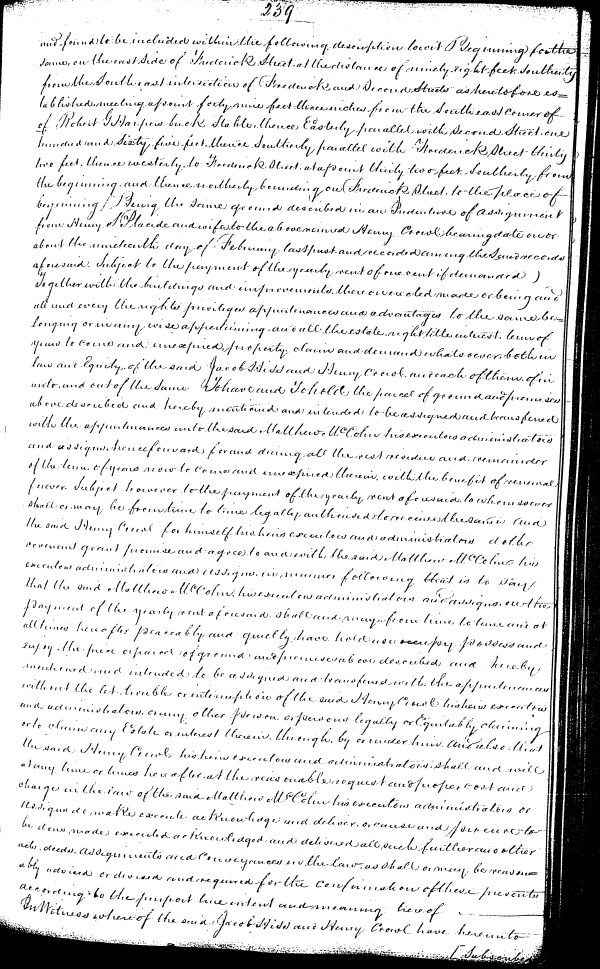 239
and found to be included within the following description to wit Beginning for the
same, on the east side of Frederick Street at the distance of ninety eight feet Southerly
from the South east intersection of Frederick and Second Streets as heretofore es=
tablished meeting a point forty nine feet three inches from the South east corner of
of Robert G Harpers brick Stable thence Easterly parallel with Second Street one
hundred and Sixty five feet, thence Southerly parallel with Frederick Street thirty
two feet, thence westerly to Frederick Street at a point thirty two feet Southerly from
the beginning and thence northerly bounding on Frederick Street to the place of
beginning (Being the same ground described in an Indenture of assignment
from Henry Placide and wife to the above named Henry Crowl bearing date on or
about the nineteenth day of February last past and recorded among the Land records
aforesaid Subject to the payment of the yearly rent of one cent if demanded)
Together with the buildings and improvements thereon erected made or being and
all and every the rights privileges appurtenances and advantages to the same be=
longing or in any wise appertaining and all the estate right title interest term of
years to come and unexpired property claim and demand whatsoever both in
law and Equity of the said Jacob Hiss and Henry Crowl and each of them of in
unto and out of the same To have and To hold the parcel of ground and premises
above described and hereby mentioned and intended to be assigned and transferred
with the appurtenances unto the said Matthew McColm his executors administrators
and assigns henceforward for and during all the rest residue and remainder
of the term of years now to come and unexpired therein with the benefit of renewal
forever Subject however to the payment of the yearly rent aforesaid to whomsoever
shall or may be from time to time legally authorised to receive the same And
the said Henry Crowl for himself his heirs executors and administrators doth
covenant grant promise and agree to and with the said Matthew McColm his
executors administrators and assigns in manner following that is to say
that the said Matthew McColm his executors administrators and assigns on the
payment of the yearly rent aforesaid shall and may from time to time and at
all times hereafter peaceably and quietly have hold use occupy possess and
enjoy the piece or parcel of ground and premises above described and hereby
mentioned and intended to be assigned and transferred with the appurtenances
without the let trouble or interruption of the said Henry Crowl his heirs executors
and administrators or any other person or persons legally or Equitably claiming
or to claim any Estate or interest therein through by or under him And also that
the said Henry Crowl his heirs executors and administrators shall and will
at any time or times hereafter at the reasonable request and proper cost and
charge in the law of the said Matthew McColm his executors administrators or
assigns do make execute acknowledge and deliver or cause and procure to
be done made executed acknowledged and delivered all such further and other
acts deeds assignments and conveyances in the law as shall or may be reason=
ably advised or devised and required for the confirmation of these presents
according to the purport true intent and meaning hereof
In Witness whereof the said Jacob Hiss and Henry Crowl have hereunto
[Subscribed